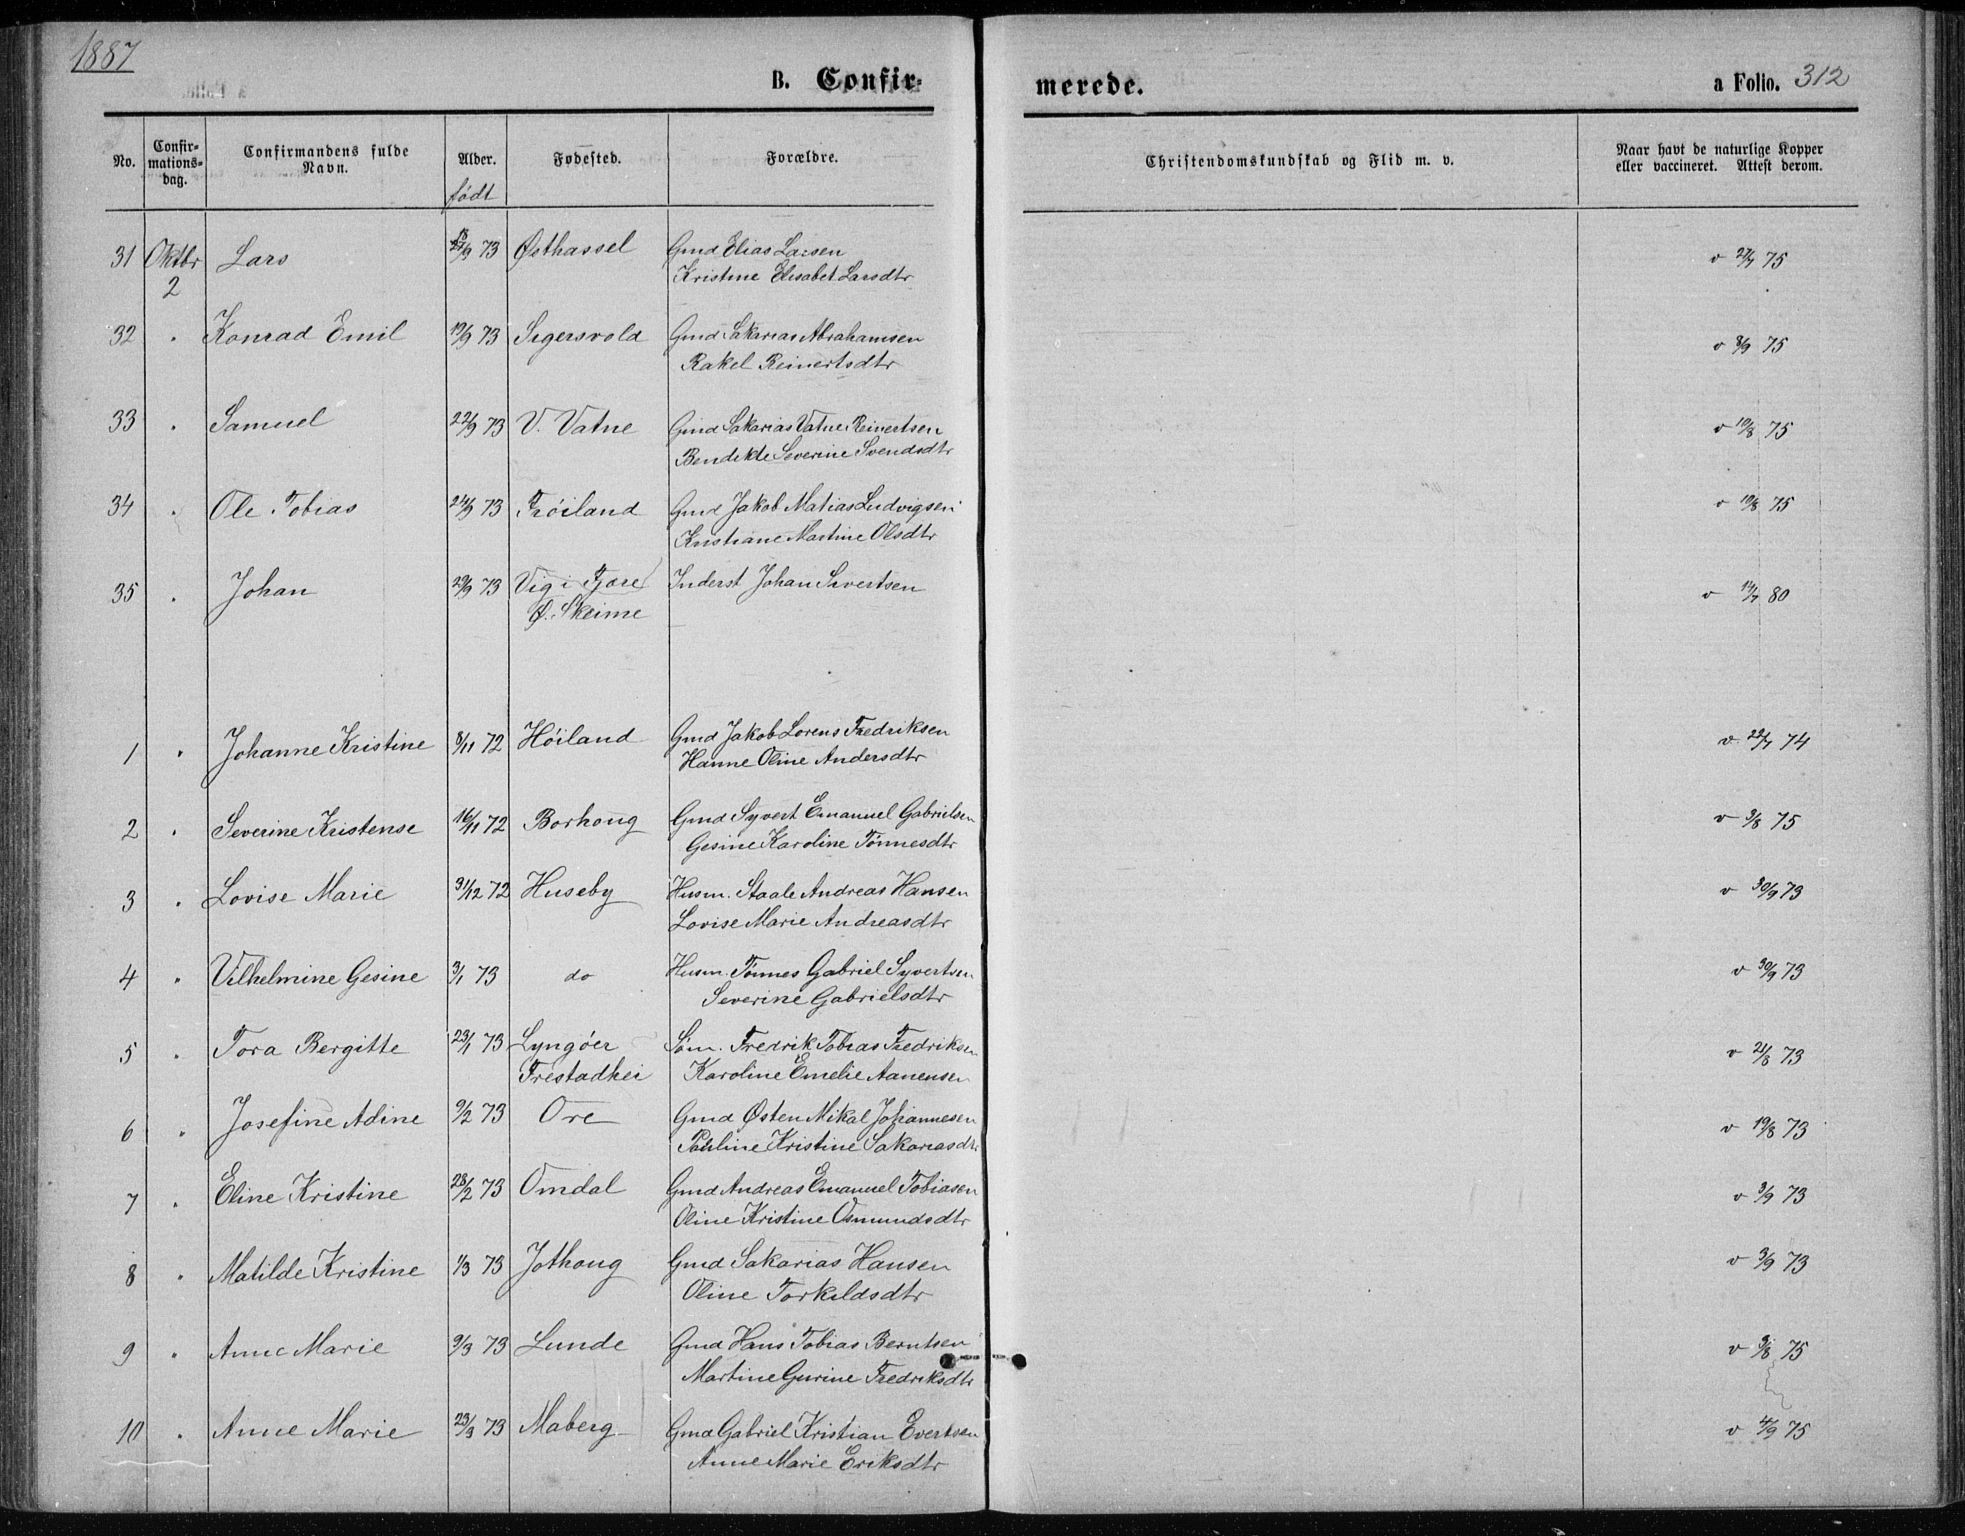 1887
B. Confir-
merede.
a Folio. 312
No.
Confir-
mations-
dag.
Confirmandens fulde
Navn.
Alder.
født
Fødested.
Forældre.
Christendomskundskab og Flid m. v.
Naar havt de naturlige Kopper
eller vaccineret. Attest derom.
31 Oktbr Lars /9 73 Østhassel Gmd Elias Larsen v 27/7 75
2 Kristine Elisabet Larsdtr
32 " Konrad Emil 19/9 73 Sigersvold Gmd Sakarias Abrahamsen v 8/9 75
Rakel Reinertsdtr
33 " Samuel 22/9 73 V. Vatne Gmd Sakarias Vatne Reinertsen v 10/8 75
Bendikte Severine Svendsdtr
34 " Ole Tobias 24/9 73 Frøiland Gmd Jakob Matias Ludvigsen v 10/8 75
Kristiane Martine Olsdtr
35 " Johan 29/9 73 Vig i Fjære Inderst Johan Sivertsen v 14/7 80
Ø. Skeime
1 " Johanne Kristine 8/11 72 Høiland Gmd Jakob Lorens Fredriksen v 22/7 74
Hanne Oline Andersdtr
2 " Severine Kristense 16/11 72 Borhoug Gmd Syvert Emanuel Gabrielsen v 3/8 75
Gesine Karoline Tønnesdtr
3 " Lovise Marie 31/12 72 Huseby Husm. Staale Andreas Hansen v 30/9 73
Lovise Marie Andreasdtr
4 " Vilhelmine Gesine 3/1 73 do Husm. Tønnes Gabriel Syvertsen v 30/9 73
Severine Gabrielsdtr
5 " Tora Bergitte 23/1 73 Lyngøer Søm. Fredrik Tobias Fredriksen v 21/8 73
Frestadhei Karoline Emelie Aanensen
6 " Josefine Adine 9/2 73 Ore Gmd Østen Mikal Johannesen v 19/8 73
Pauline Kristine Sakariasdtr
7 " Eline Kristine 28/2 73 Omdal Gmd Andreas Emanuel Tobiasen v 3/9 73
Oline Kristine Osmundsdtr
8 " Matilde Kristine 1/3 73 Jothoug Gmd Sakarias Hansen v 3/9 73
Oline Torkildsdtr
9 " Anne Marie 9/3 73 Lunde Gmd Hans Tobias Berntsen v 9/8 75
Martine Gurine Fredriksdtr
10 " Anne Marie 23/3 73 Maberg Gmd Gabriel Kristian Evertsen v 4/9 75
Anne Marie Eriksdtr